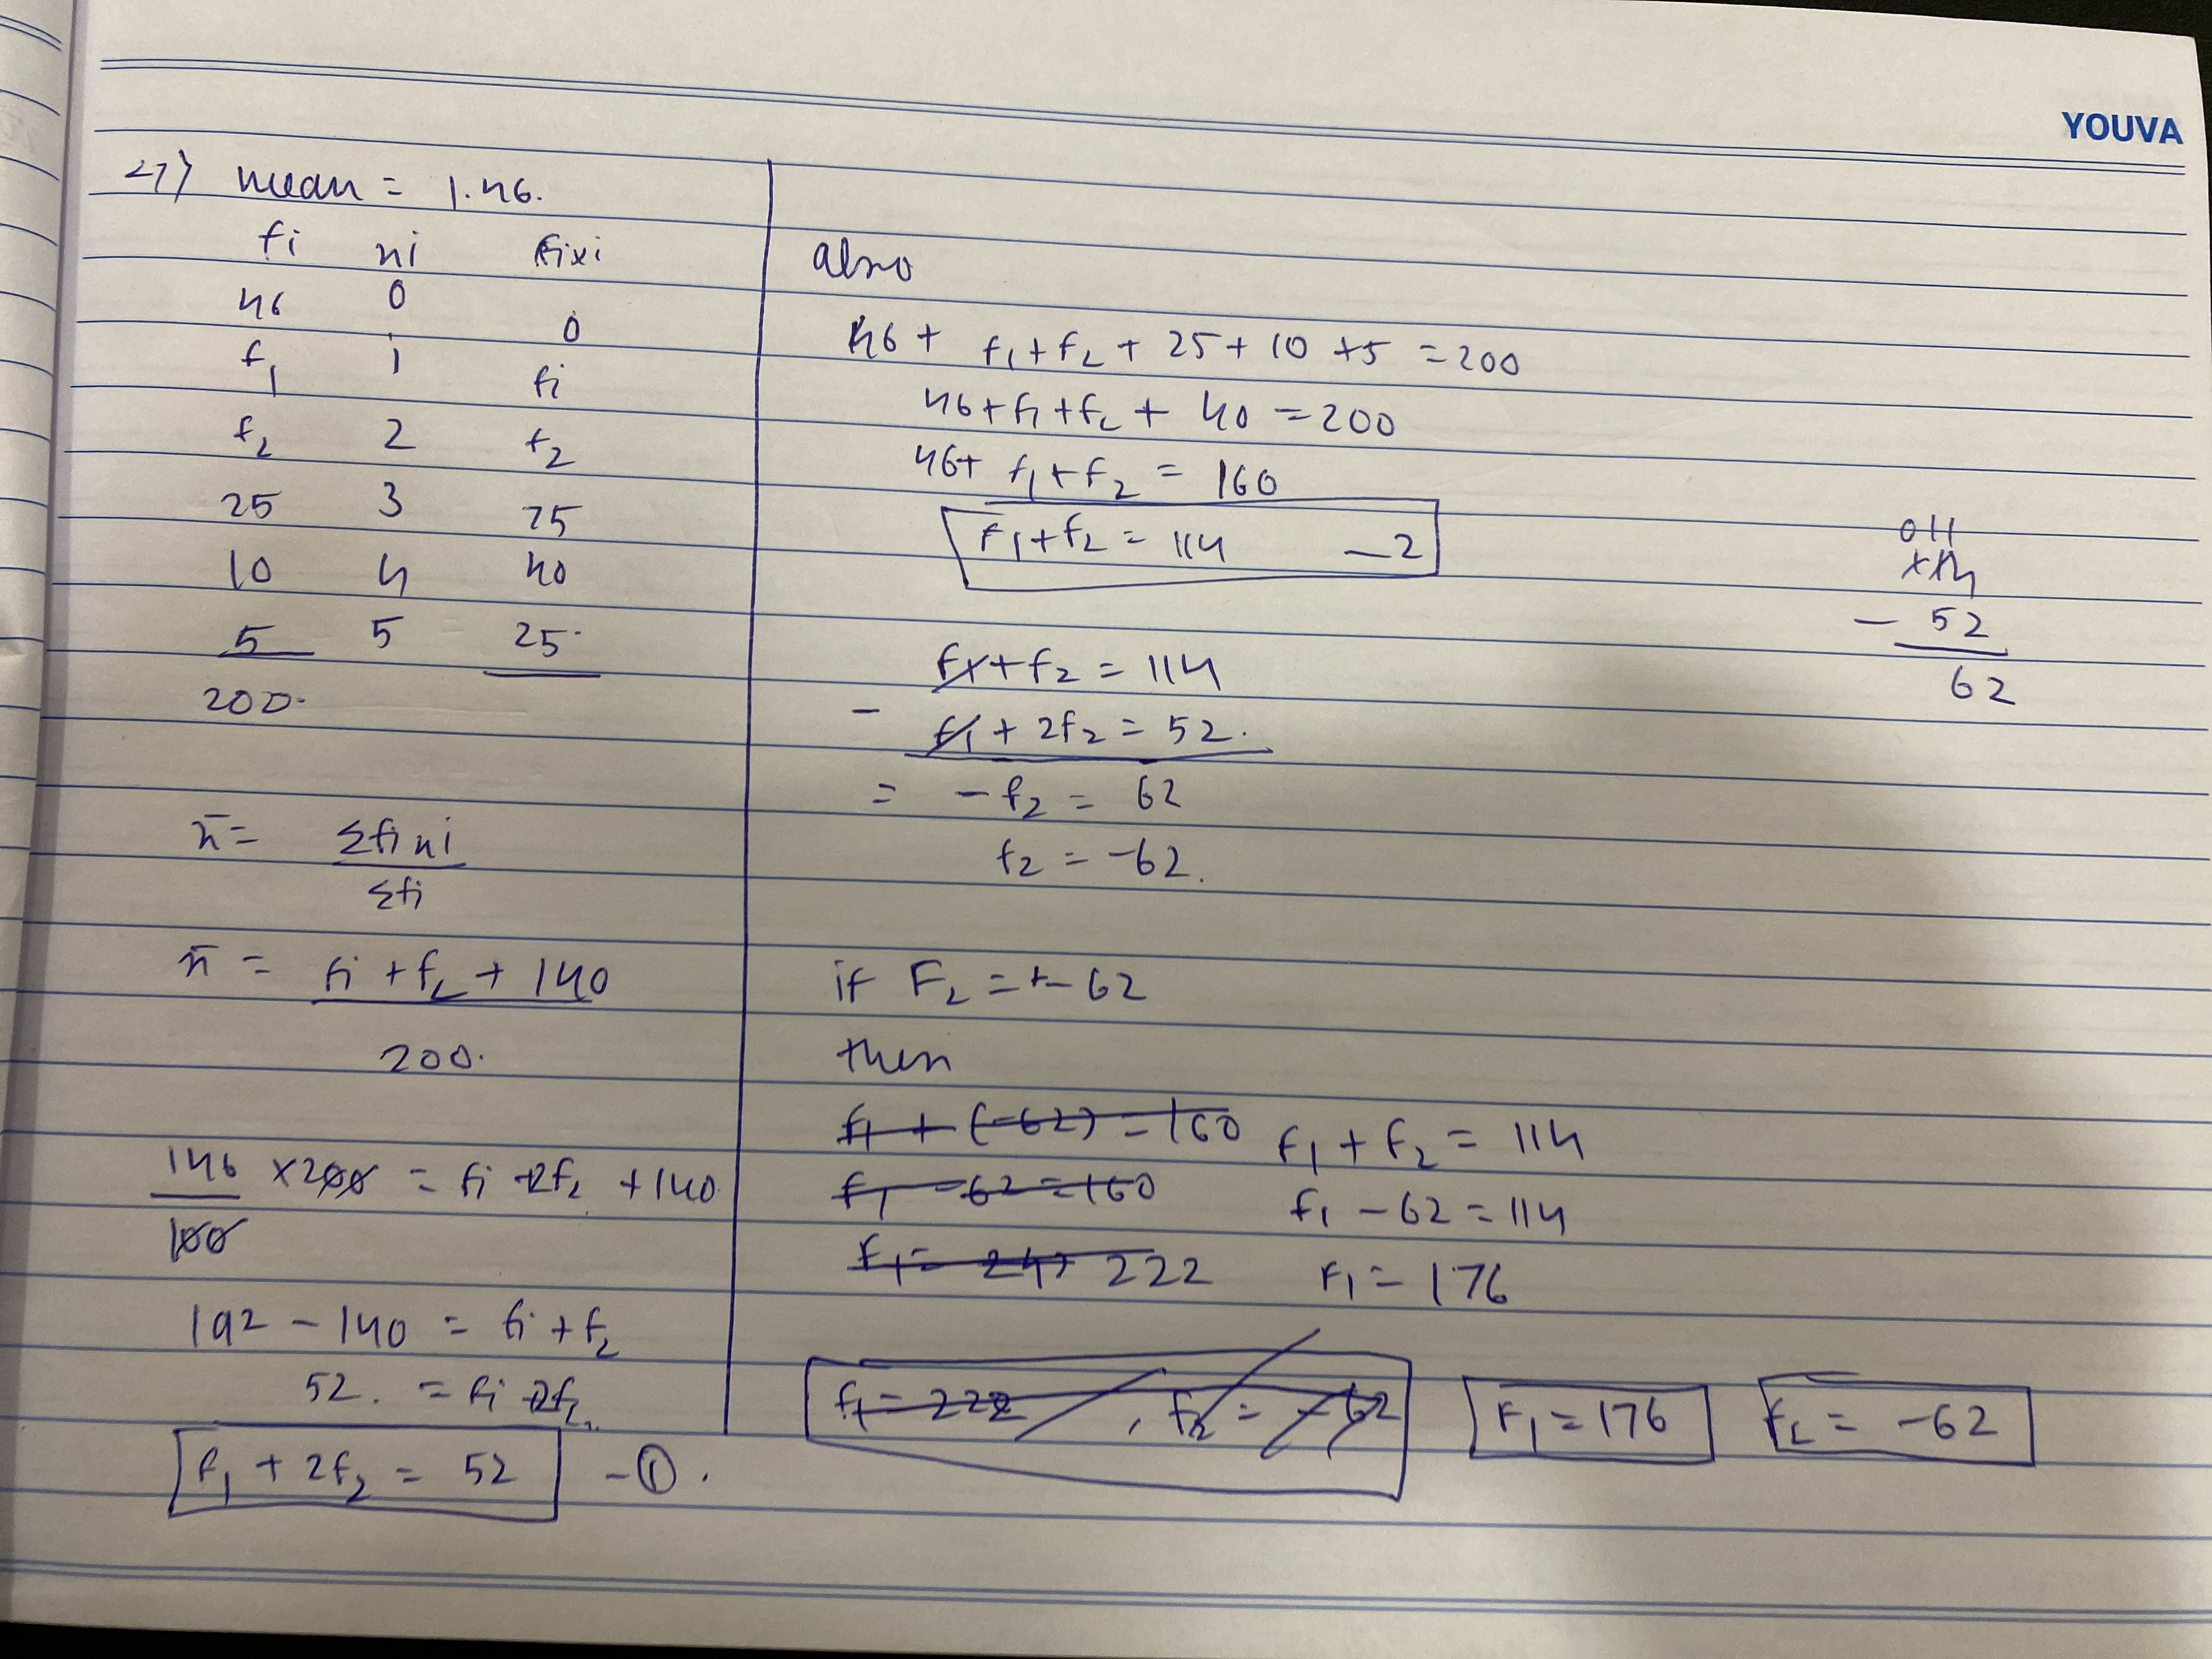 YOUVA
27) mean = 1.46.
fi xi fixi
46 0 0
f1 1 fi
f2 2 f2
25 3 75
10 4 40
5 5 25.
200.
x̄ = Σfixi
Σfi
x̄ = fi + f2 + 140
200.
146 × 200 = fi + 2f2 + 140
100
192 - 140 = fi + f2
52. = fi + 2f2.
f1 + 2f2 = 52 - ①.
also
46 + f1 + f2 + 25 + 10 + 5 = 200
46 + f1 + f2 + 40 = 200
46 + f1 + f2 = 160
F1 + f2 = 114 - 2
f1 + f2 = 114
- f1 + 2f2 = 52.
= - f2 = 62
f2 = -62.
011
114
- 52
62
if F2 = +- 62
then
f1 + (-62) = 160
f1 - 62 = 160
f1 = 222
f1 + f2 = 114
f1 - 62 = 114
F1 = 176
f1 = 222, f2 = -62
F1 = 176
f2 = -62